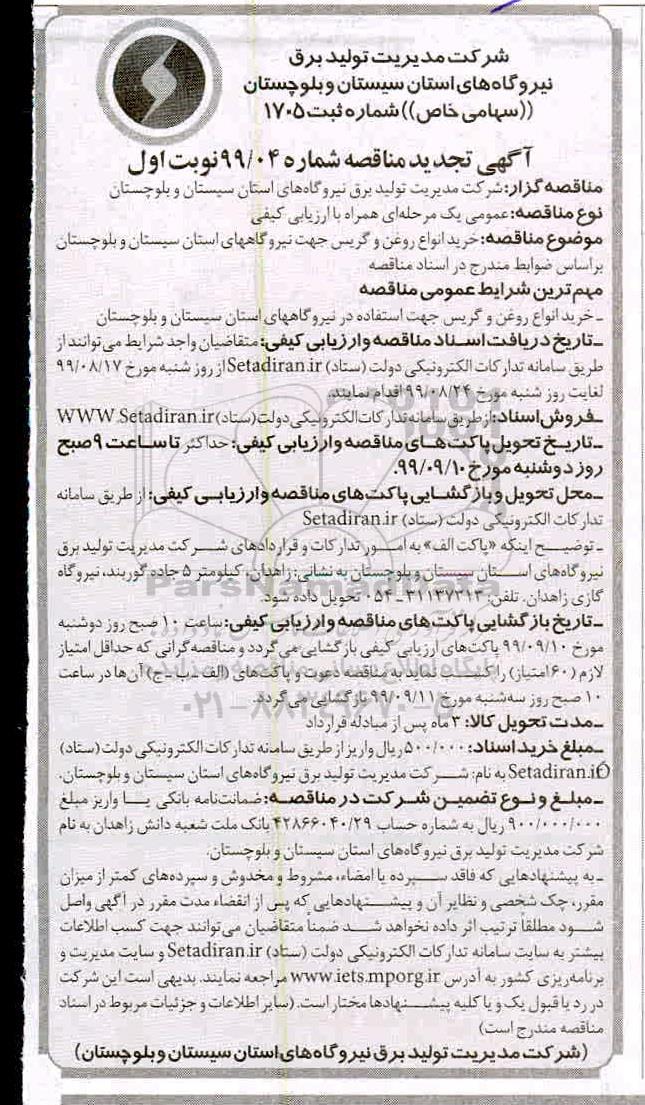 شرکت مدیریت تولید برق
نیروگاه‌های استان سیستان و بلوچستان
((سهامی خاص)) شماره ثبت ۱۷۰۵
آگهی تجدید مناقصه شماره ۹۹/۰۴ نوبت اول
مناقصه گزار: شرکت مدیریت تولید برق نیروگاه‌های استان سیستان و بلوچستان
نوع مناقصه: عمومی یک مرحله‌ای همراه با ارزیابی کیفی
موضوع مناقصه: خرید انواع روغن و گریس جهت نیروگاههای استان سیستان و بلوچستان
براساس ضوابط مندرج در اسناد مناقصه
مهم‌ترین شرایط عمومی مناقصه
ـ خرید انواع روغن و گریس جهت استفاده در نیروگاههای استان سیستان و بلوچستان
ـ تاریخ دریافت اسناد مناقصه وارزیابی کیفی: متقاضیان واجد شرایط می‌توانند از
طریق سامانه تدارکات الکترونیکی دولت (ستاد) Setadiran.ir از روز شنبه مورخ ۹۹/۰۸/۱۷
لغایت روز شنبه مورخ ۹۹/۰۸/۲۴ اقدام نمایند.
ـ فروش اسناد: از طریق سامانه تدارکات الکترونیکی دولت (ستاد) WWW.Setadiran.ir
ـ تاریخ تحویل پاکت‌های مناقصه وارزیابی کیفی: حداکثر تا ساعت ۹ صبح
روز دوشنبه مورخ ۹۹/۰۹/۱۰.
ـ محل تحویل و بازگشایی پاکت‌های مناقصه وارزیابی کیفی: از طریق سامانه
تدارکات الکترونیکی دولت (ستاد) Setadiran.ir
ـ توضیح اینکه «پاکت الف» به امور تدارکات و قراردادهای شرکت مدیریت تولید برق
نیروگاه‌های استان سیستان و بلوچستان به نشانی: زاهدان، کیلومتر ۵ جاده گوربند، نیروگاه
گازی زاهدان. تلفن: ۳۱۱۳۷۲۱۳ ـ ۰۵۴ تحویل داده شود.
ـ تاریخ بازگشایی پاکت‌های مناقصه وارزیابی کیفی: ساعت ۱۰ صبح روز دوشنبه
مورخ ۹۹/۰۹/۱۰ پاکت‌های ارزیابی کیفی بازگشایی می‌گردد و مناقصه‌گرانی که حداقل امتیاز
لازم (۶۰ امتیاز) را کسب نماید به مناقصه دعوت و پاکت‌های (الف ـ ب ـ ج) آن‌ها در ساعت
۱۰ صبح روز سه‌شنبه مورخ ۹۹/۰۹/۱۱ بازگشایی می‌گردد.
ـ مدت تحویل کالا: ۳ ماه پس از مبادله قرارداد
ـ مبلغ خرید اسناد: ۵۰۰/۰۰۰ ریال واریز از طریق سامانه تدارکات الکترونیکی دولت (ستاد)
Setadiran.ir به نام: شرکت مدیریت تولید برق نیروگاه‌های استان سیستان و بلوچستان.
ـ مبلغ و نوع تضمین شرکت در مناقصه: ضمانت‌نامه بانکی یا واریز مبلغ
۹۰۰/۰۰۰/۰۰۰ ریال به شماره حساب ۴۲۸۶۶۰۴۰/۲۹ بانک ملت شعبه دانش زاهدان به نام
شرکت مدیریت تولید برق نیروگاه‌های استان سیستان و بلوچستان.
ـ به پیشنهادهایی که فاقد سپرده یا امضاء، مشروط و مخدوش و سپرده‌های کمتر از میزان
مقرر، چک شخصی و نظایر آن و پیشنهادهایی که پس از انقضاء مدت مقرر در آگهی واصل
شود مطلقاً ترتیب اثر داده نخواهد شد ضمناً متقاضیان می‌توانند جهت کسب اطلاعات
بیشتر به سایت سامانه تدارکات الکترونیکی دولت (ستاد) Setadiran.ir و سایت مدیریت و
برنامه‌ریزی کشور به آدرس www.iets.mporg.ir مراجعه نمایند. بدیهی است این شرکت
در رد یا قبول یک و یا کلیه پیشنهادها مختار است. (سایر اطلاعات و جزئیات مربوط در اسناد
مناقصه مندرج است)
(شرکت مدیریت تولید برق نیروگاه‌های استان سیستان و بلوچستان)
ParsNamadData
۰۲۱-۸۸۳۴۹۶۷۰-۵